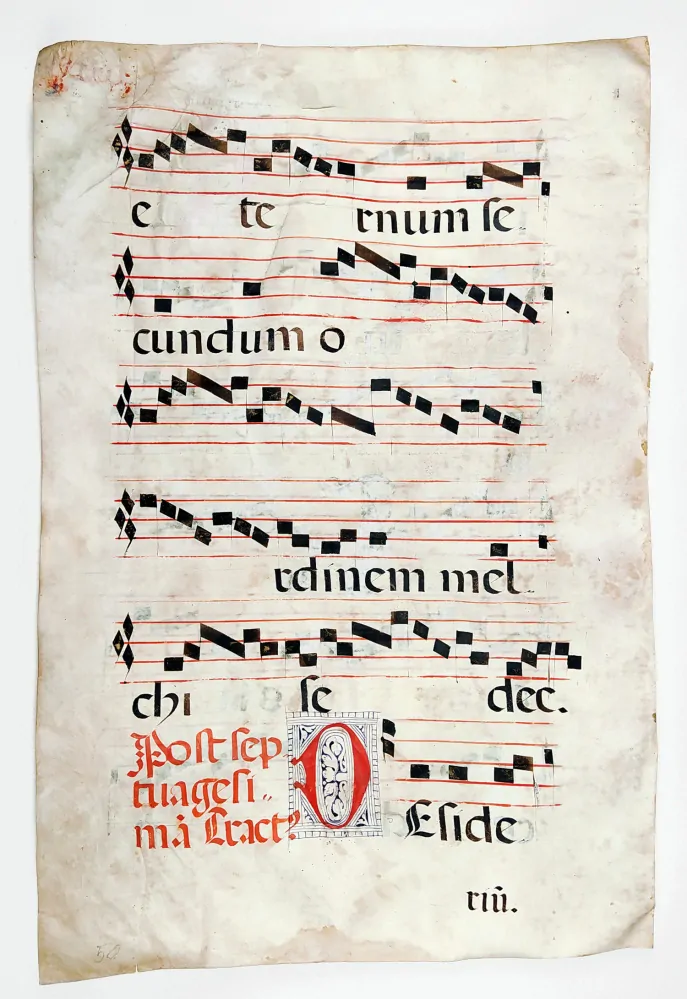 e te rnum se
cundum o
rdinem mel
chi se dec.
Post sep
tuagesi..
mã Tract⁹
D Eside
riũ.